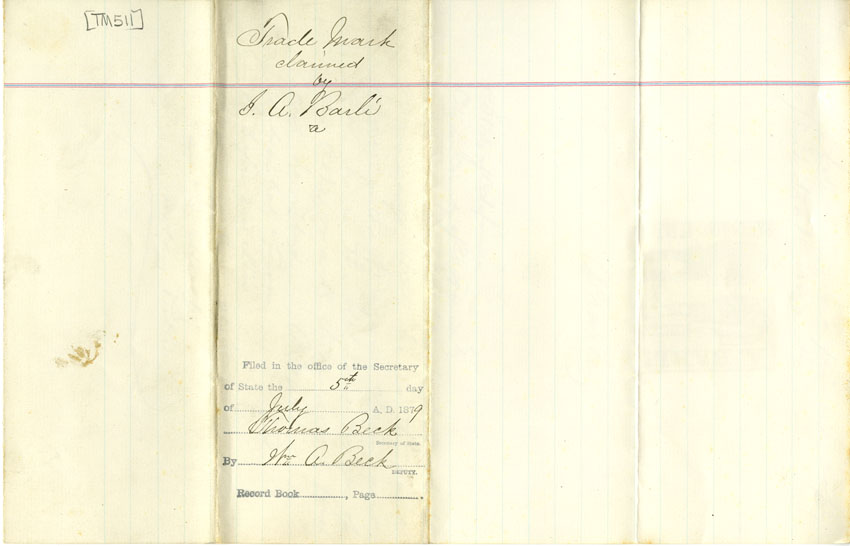 [TM511]
Trade Mark
claimed
by
J. A. Barli
a
Filed in the office of the Secretary
of State the 5th day
of July A. D. 1879
Thomas Beck
Secretary of State.
By Wm A. Beck
DEPUTY.
Record Book............, Page............